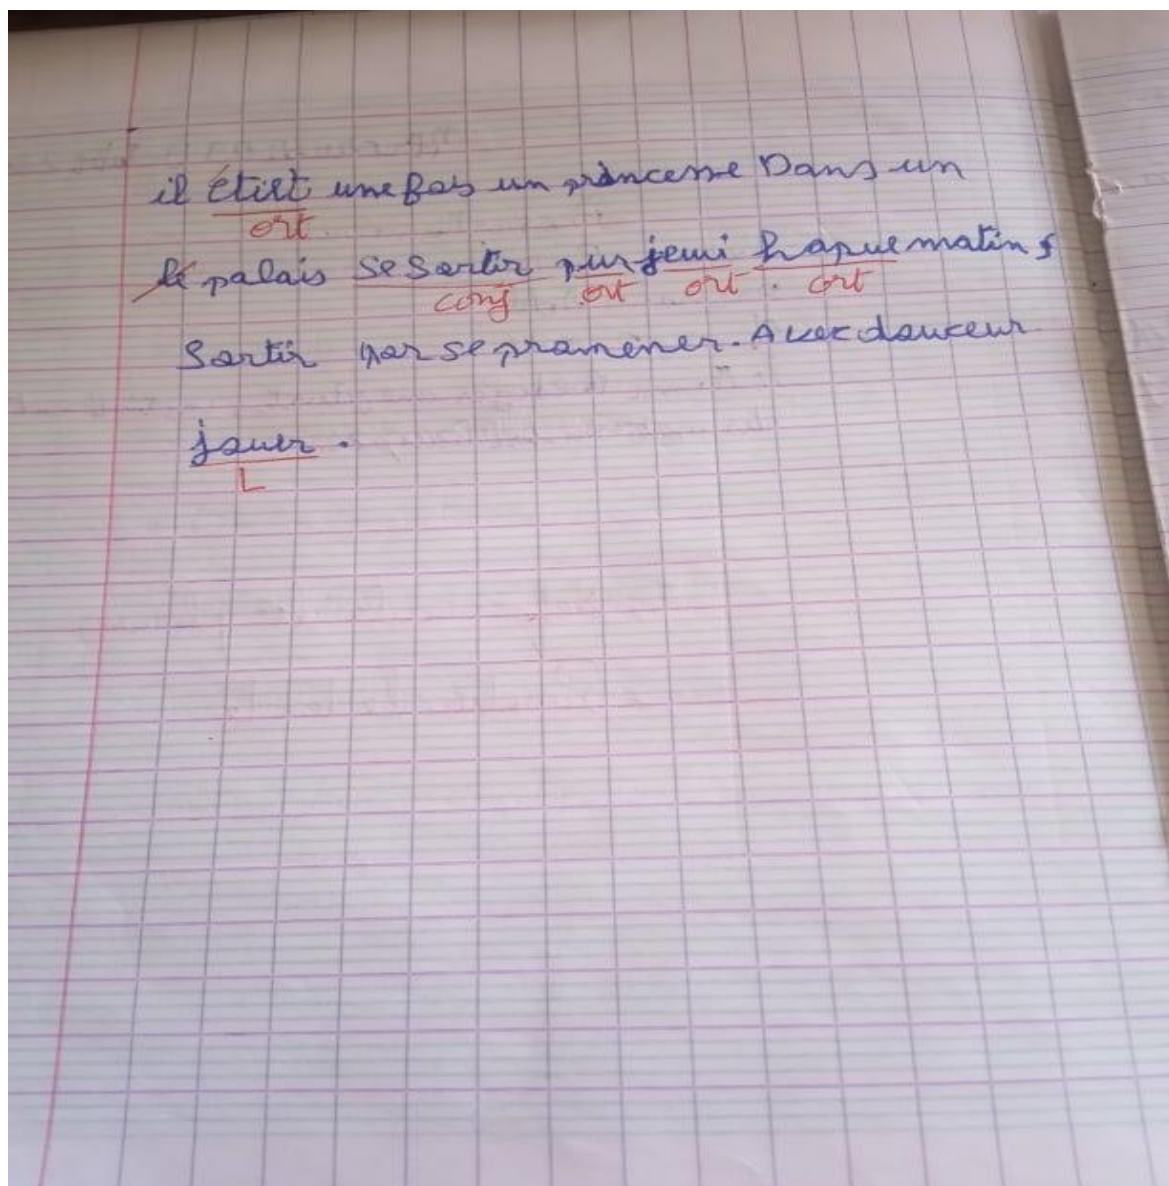 il étiet une fois un princesse Dans un
ort
le palais se sortir pur jemi haque matin s
conj ort ort ort
Sortir par se promener. Avec douceur
jouer.
L